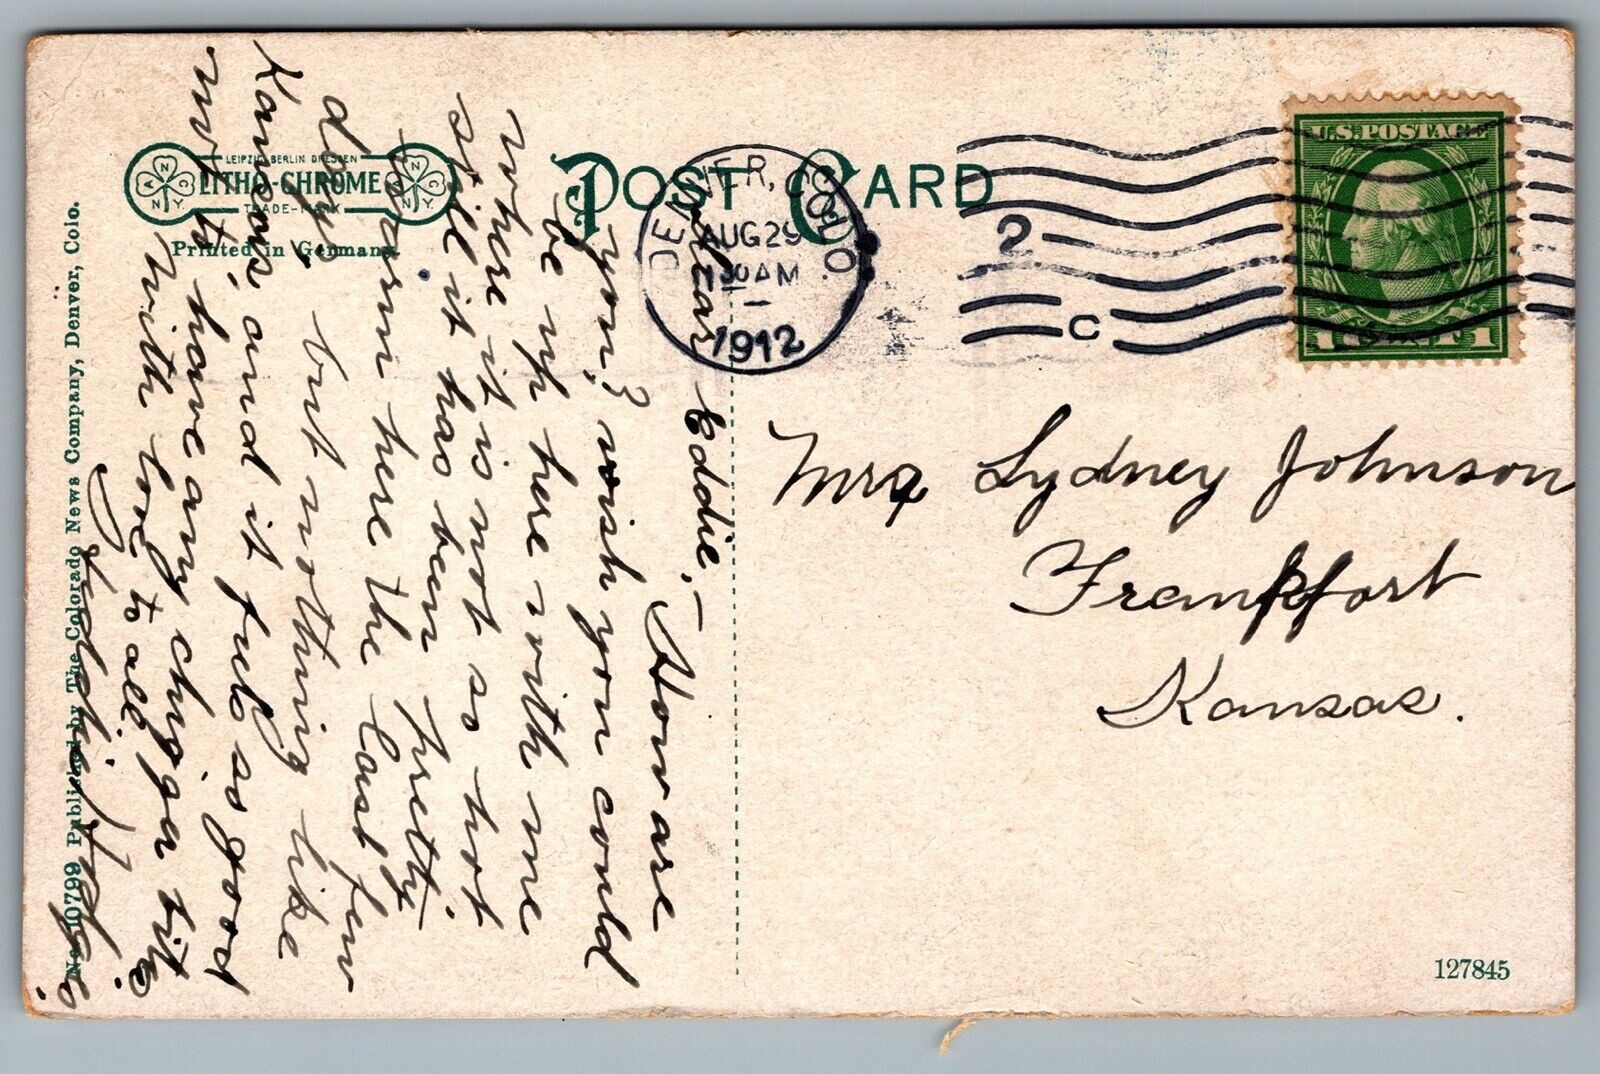 POST CARD
LEIPZIG BERLIN DRESDEN
LITHO-CHROME
TRADE-MARK
Printed in Germany
DENVER, COLO.
AUG 29
30 AM
1912
2
C
U.S. POSTAGE
1 CENT 1
Mrs Sydney Johnson
Frankfort
Kansas.
Dear Eddie, – How are
you? wish you could
be up here with me
where it is not so hot
still it has been pretty
warm here the last few
days but nothing like
Kansas, and it feels so good
not to have any chigger bites
with love to all,
No. 10799 Published by The Colorado News Company, Denver, Colo.
127845